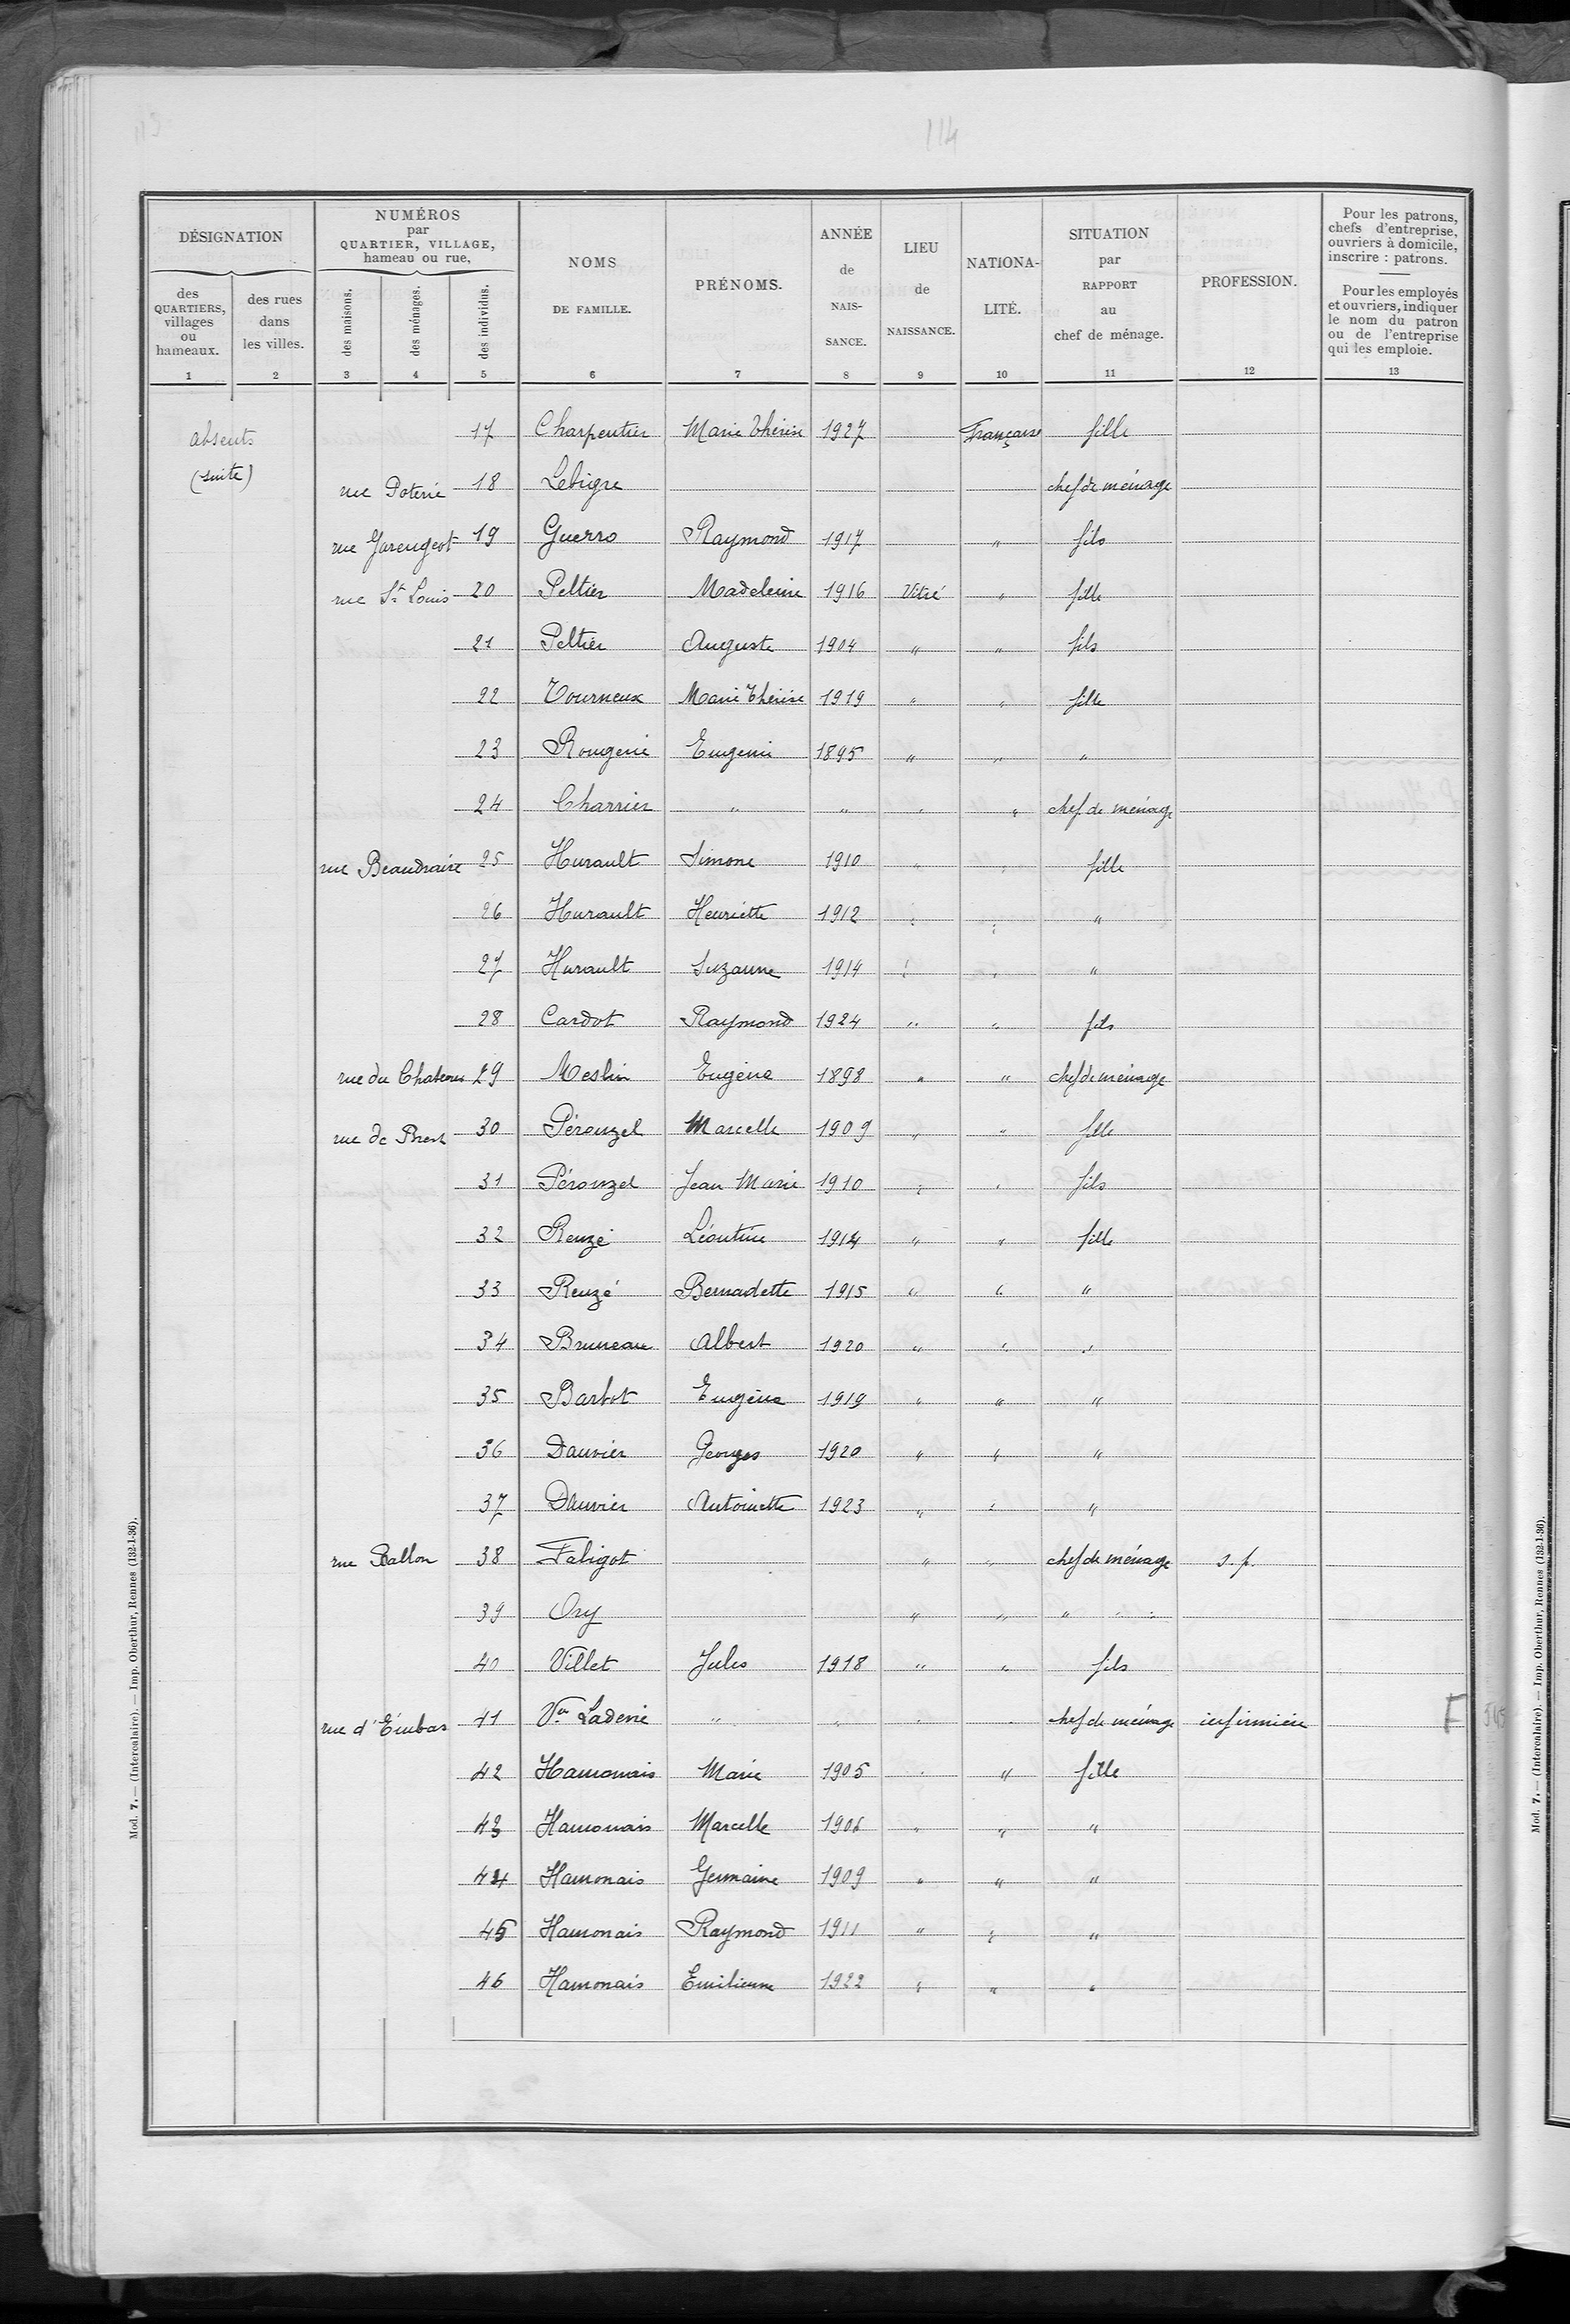 114
DÉSIGNATION
des QUARTIERS, villages ou hameaux.
des rues dans les villes.
NUMÉROS par QUARTIER, VILLAGE, hameau ou rue,
des maisons.
des ménages.
des individus.
NOMS DE FAMILLE.
PRÉNOMS.
ANNÉE de NAIS-SANCE.
LIEU de NAISSANCE.
NATIONA-LITÉ.
SITUATION par RAPPORT au chef de ménage.
PROFESSION.
Pour les patrons, chefs d'entreprise, ouvriers à domicile, inscrire : patrons.
Pour les employés et ouvriers, indiquer le nom du patron ou de l'entreprise qui les emploie.
1 2 3 4 5 6 7 8 9 10 11 12 13
absents 17 Charpentier Marie Thérèse 1927 Française fille
(suite) rue Poterie 18 Lebigre chef de ménage
rue Garengeot 19 Guerro Raymond 1917 " fils
rue St Louis 20 Peltier Madeleine 1916 Vitré " fille
21 Peltier Auguste 1904 " " fils
22 Tourneux Marie Thérèse 1919 " " fille
23 Rougerie Eugénie 1895 " " "
24 Charrier " " " " chef de ménage
rue Beaudraire 25 Hurault Simone 1910 " " fille
26 Hurault Henriette 1912 " " "
27 Hurault Suzanne 1914 " " "
28 Cardot Raymond 1924 " " fils
rue du Chateau 29 Meslin Eugène 1898 " " chef de ménage
rue de Brest 30 Pérouzel Marcelle 1909 " " fille
31 Pérouzel Jean Marie 1910 " " fils
32 Reuzé Léontine 1914 " " fille
33 Reuzé Bernadette 1915 " " "
34 Bruneau Albert 1920 " " "
35 Barbot Eugène 1919 " " "
36 Dauvier Georges 1920 " " "
37 Dauvier Antoinette 1923 " " "
rue Rallon 38 Faligot " " chef de ménage s.p.
39 Ory " " " " "
40 Villet Jules 1918 " " fils
rue d'Embas 41 Vve Laderie " " " " chef de ménage infirmière F 345
42 Hamonais Marie 1905 " " fille
43 Hamonais Marcelle 1906 " " "
44 Hamonais Germaine 1909 " " "
45 Hamonais Raymond 1911 " " "
46 Hamonais Emilienne 1922 " " "
Mod. 7. — (Intercalaire). — Imp. Oberthur, Rennes (132-1-36).
Mod. 7. — (Intercalaire). — Imp. Oberthur, Rennes (132-1-36).